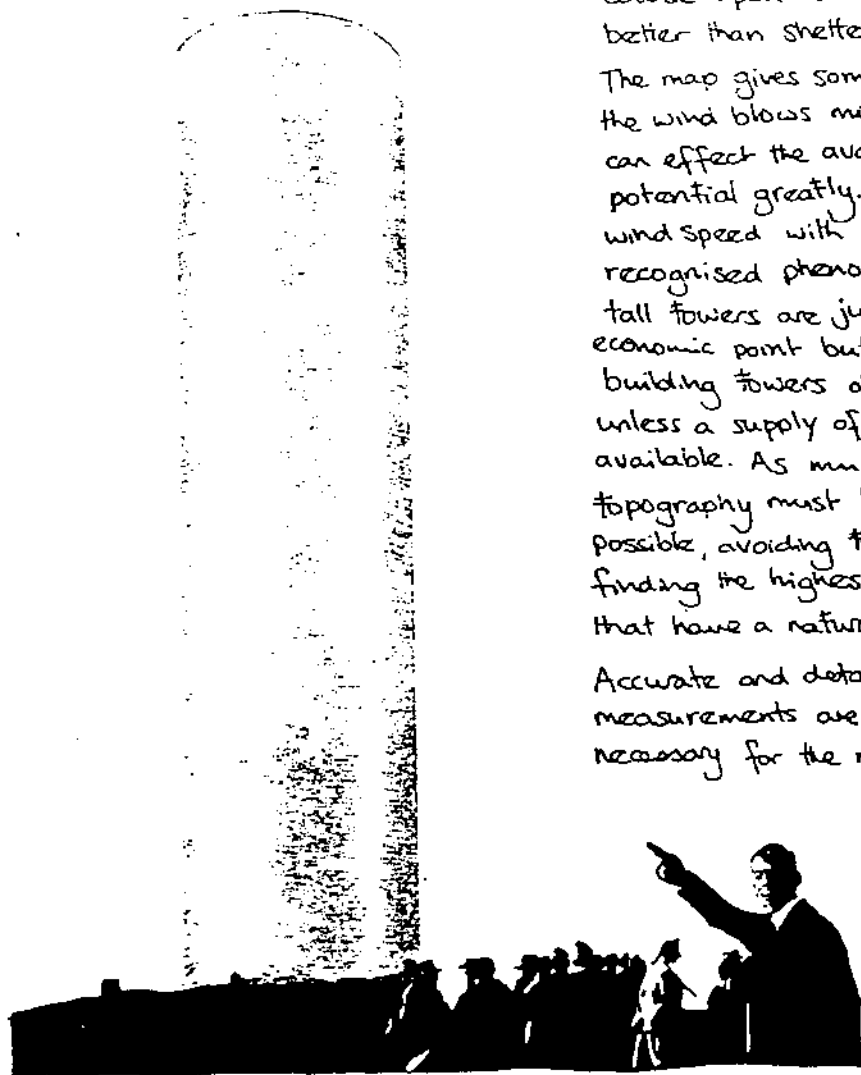 better than shelte
The map gives som
the wind blows m
can effect the ava
potential greatly.
wind speed with
recognised pheno
tall towers are ju
economic point but
building towers o
unless a supply of
available. As mu
topography must
possible, avoiding t
finding the highes
that have a natur
Accurate and deta
measurements are
necessary for the